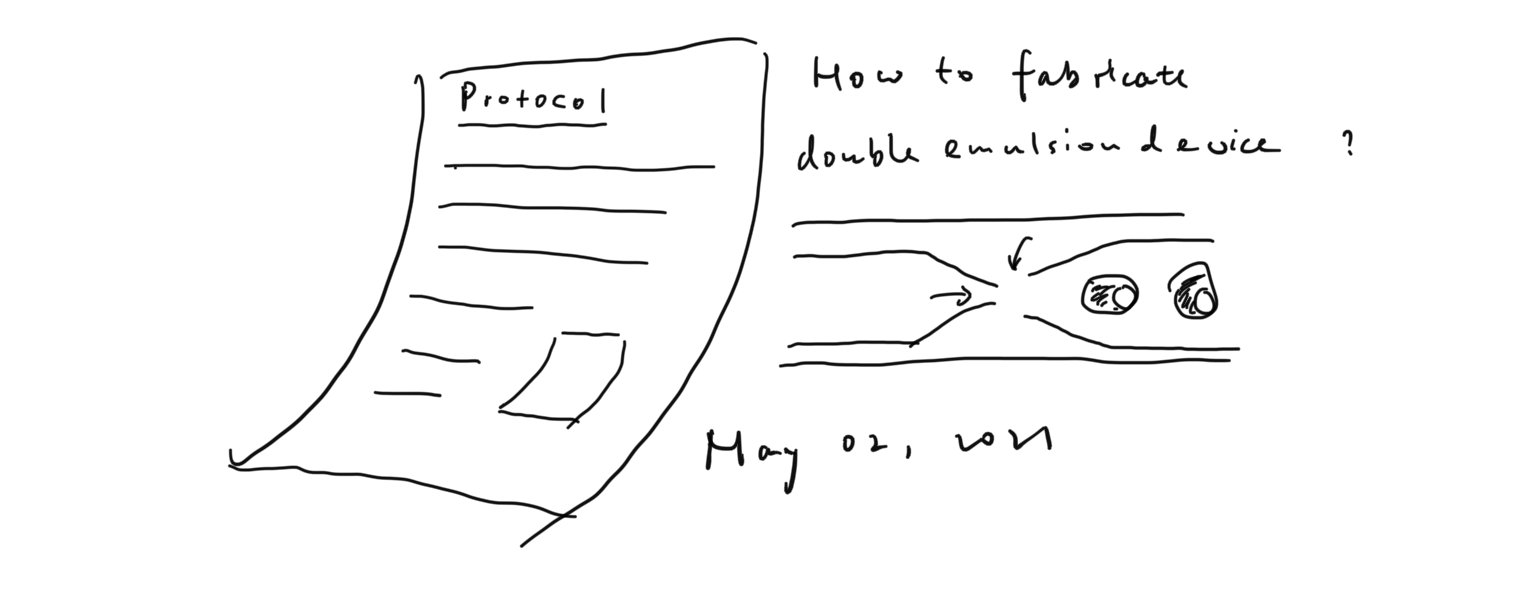 Protocol
How to fabricate
double emulsion device ?
May 02, 2021